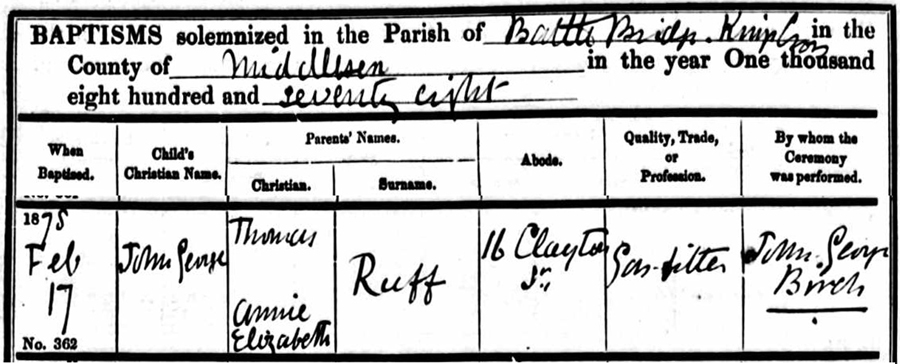 BAPTISMS solemnized in the Parish of Battle Bridge. Kings Cross in the
County of Middlesex in the year One thousand
eight hundred and seventy eight
When Baptised.
Child's Christian Name.
Parents' Names.
Christian.
Surname.
Abode.
Quality, Trade, or Profession.
By whom the Ceremony was performed.
1878
Feb
17
No. 362
John George
Thomas
Annie
Elizabeth
Ruff
16 Clayton
St.
Gas-fitter
John George
Birch